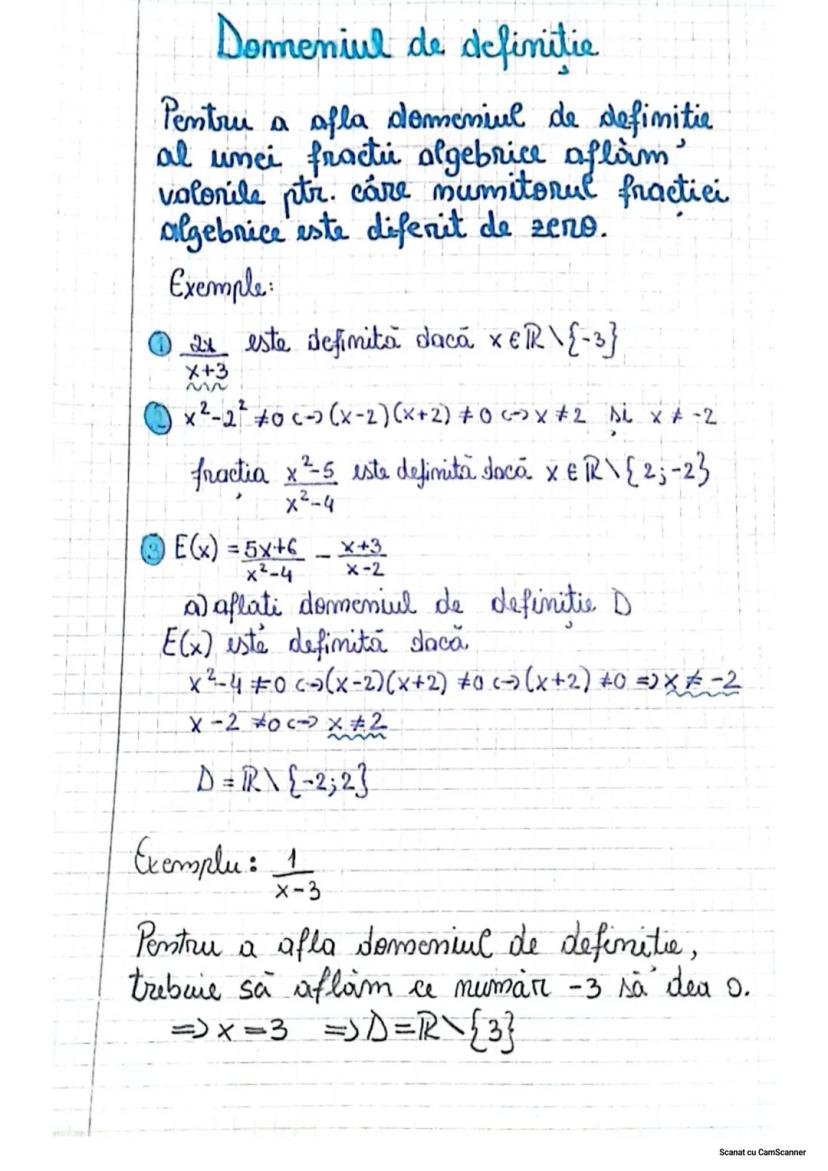 Domeniul de definiție
Pentru a afla domeniul de definitie
al unei fractii algebrice aflăm
valorile ptr. care numitorul fracției
algebrice este diferit de zero.
Exemple:
① 2x/x+3 este definită dacă x∈ℝ\{-3}
② x²-2² ≠0 <-> (x-2)(x+2) ≠0 <-> x≠2 și x≠-2
fracția x²-5/x²-4 este definită dacă x∈ℝ\{2;-2}
③ E(x) = 5x+6/x²-4 - x+3/x-2
a) aflati domeniul de definiție D
E(x) este definită dacă
x²-4≠0 <-> (x-2)(x+2) ≠0 <-> (x+2) ≠0 => x≠-2
x-2 ≠0 <-> x≠2
D = ℝ\{-2;2}
Exemplu: 1/x-3
Pentru a afla domeniul de definitie,
trebuie să aflăm ce număr -3 să dea 0.
=> x=3 => D=ℝ\{3}
Scanat cu CamScanner